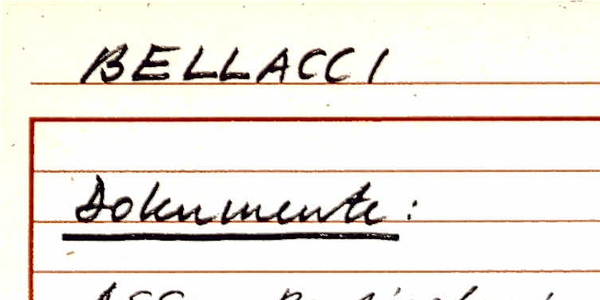 BELLACCI
Dokumente: